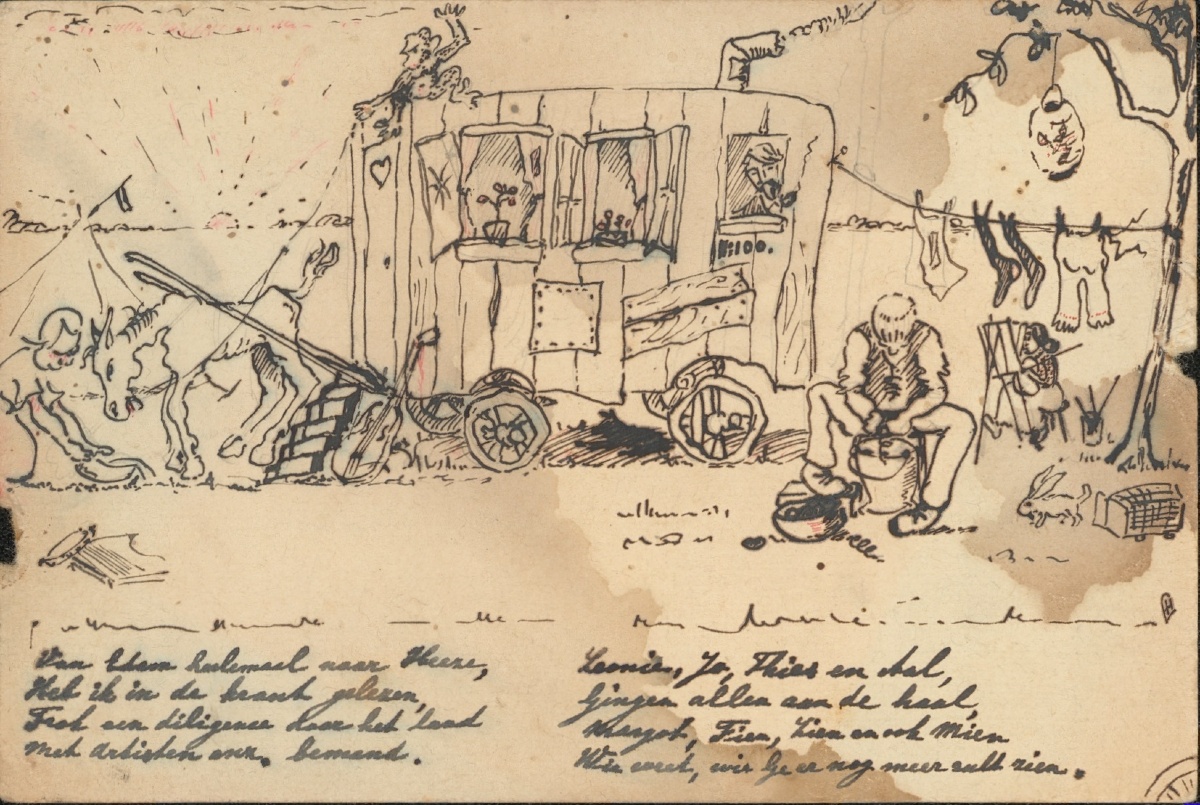 No 100.
Van Edam helemaal naar Heeze,
Heb ik in de krant gelezen,
Trok een diligence door het land
met Artisten enz. bemand.
Leonie, Jo, Thies en Aal,
Gingen allen aan de haal,
Margot, Fien, Lien en ook Mien
Wie weet, wie ge er nog meer zult zien.